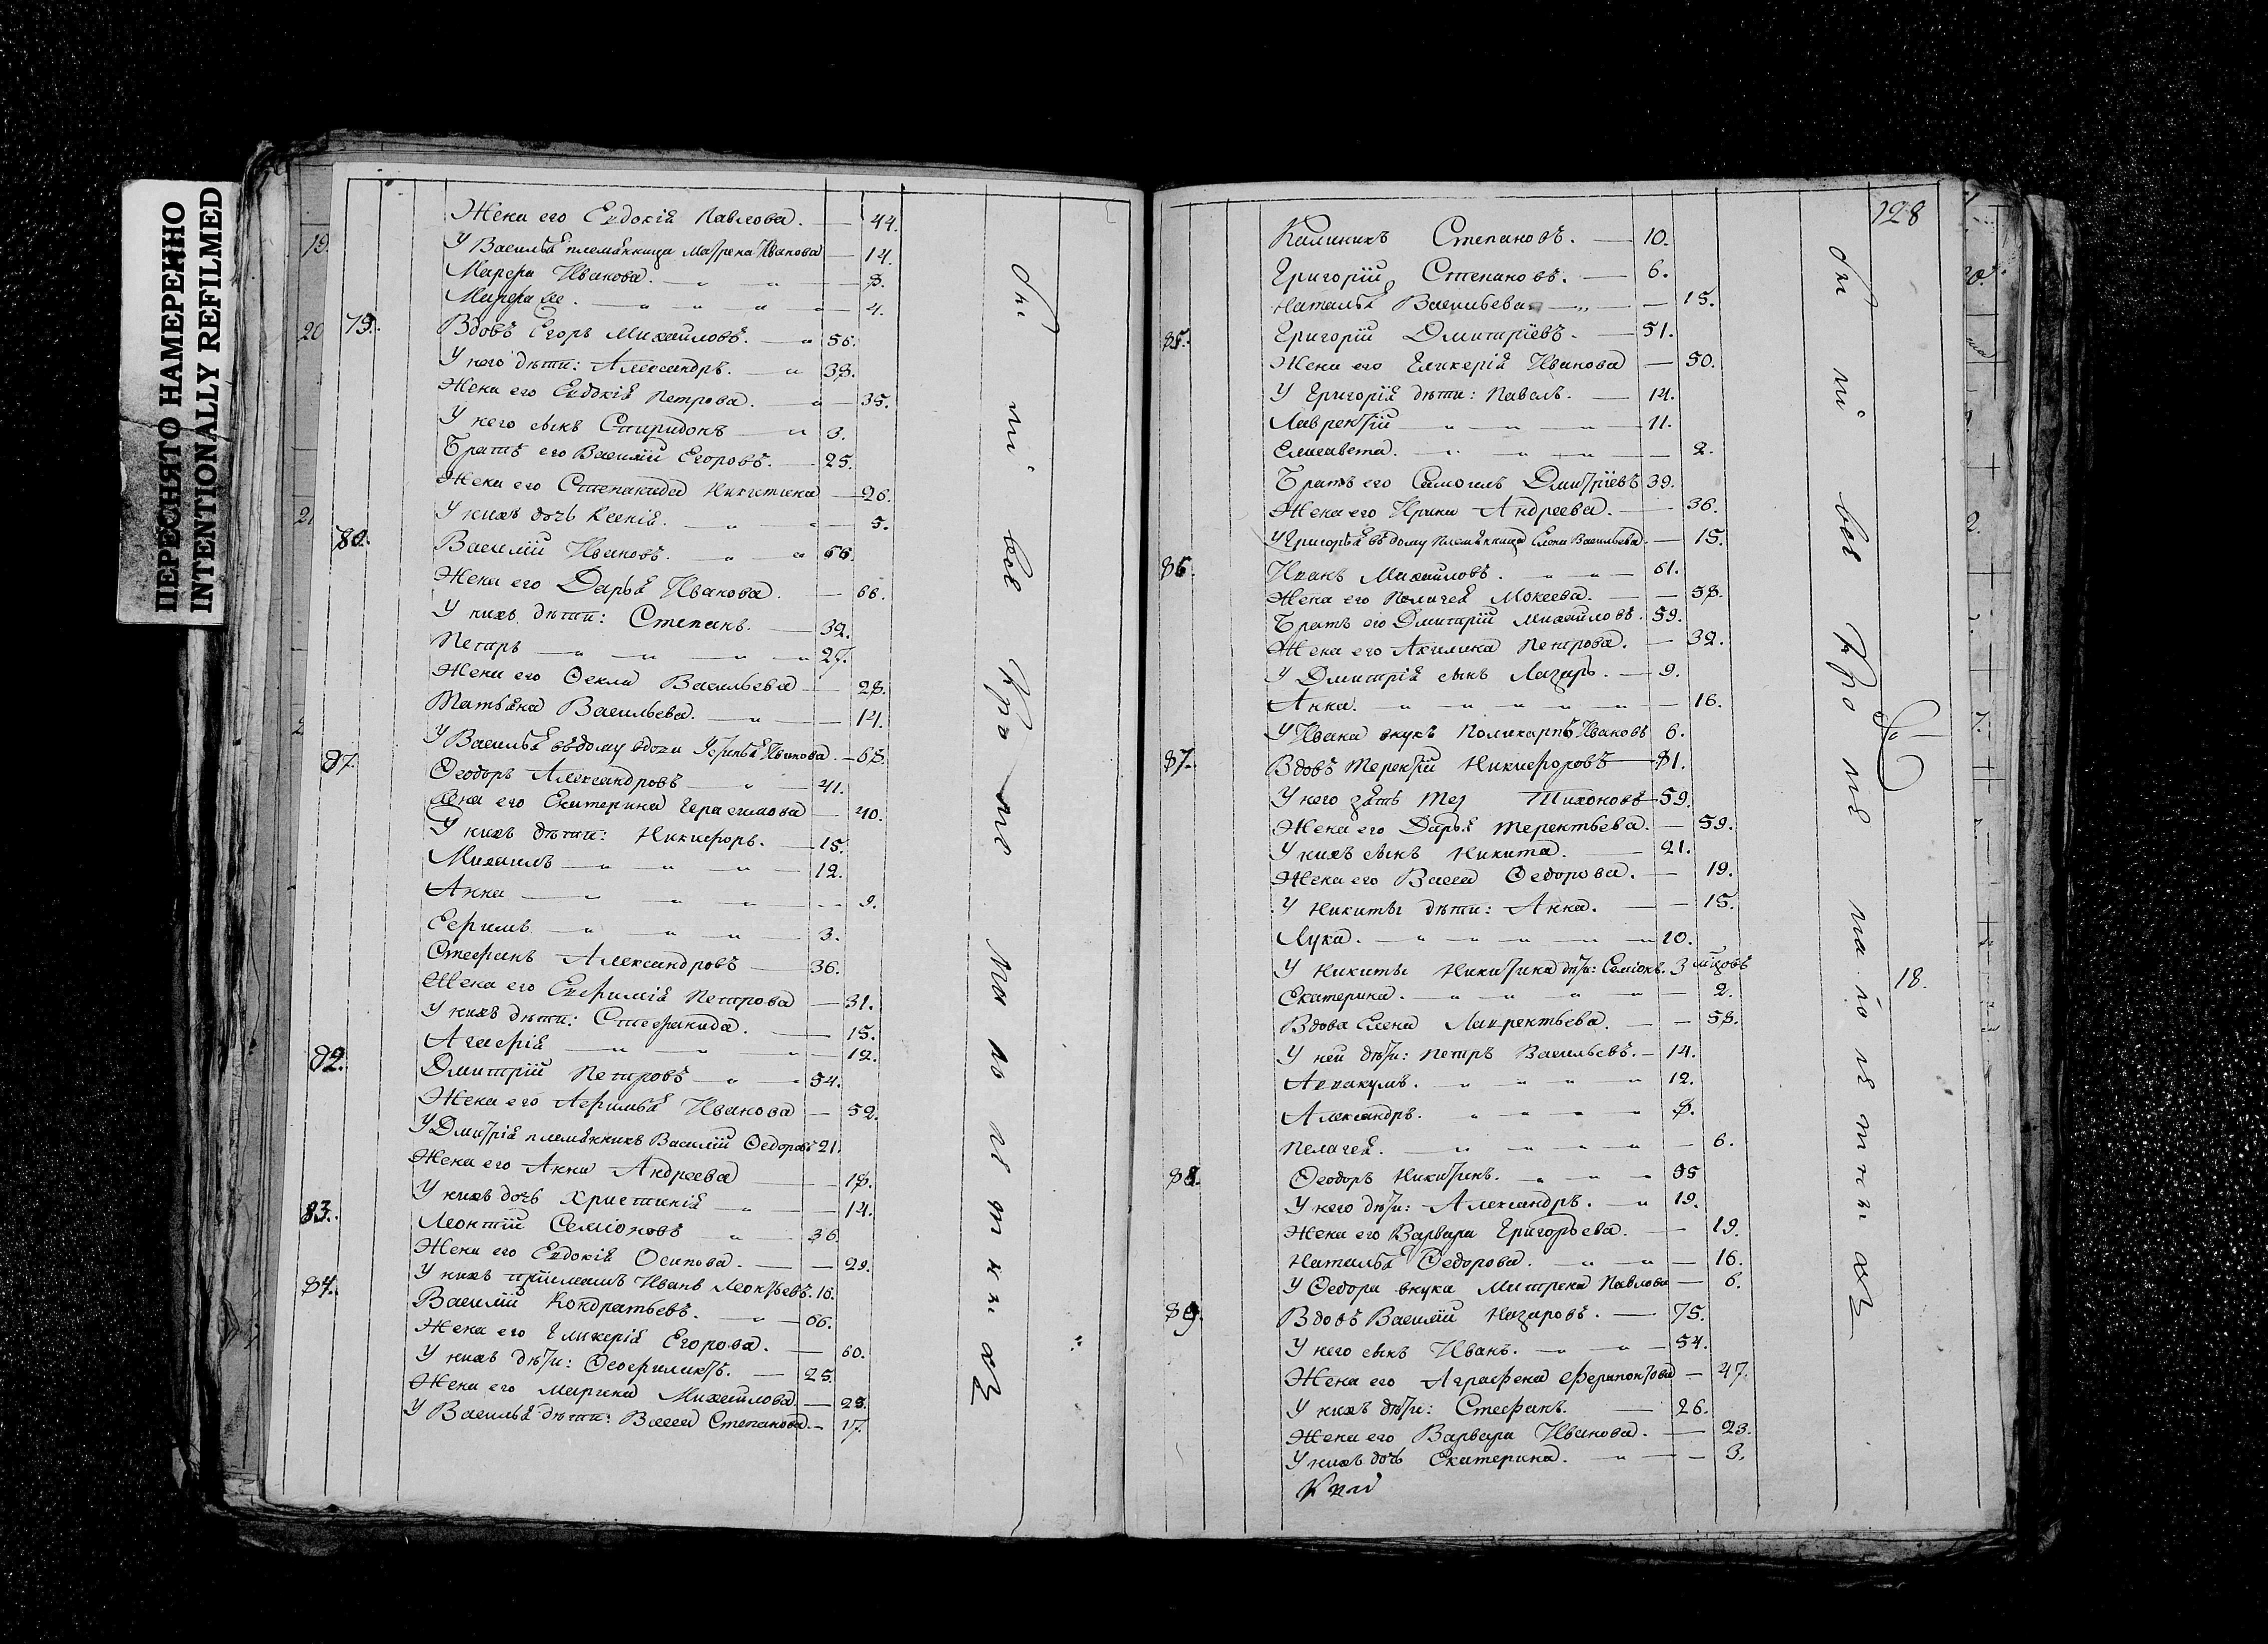 ПЕРЕСНЯТО НАМЕРЕННО
INTENTIONALLY REFILMED
Жена его Евдокія Павлова. 44.
У Василья племянница Матрена Иванова 14.
Марфа Иванова. 8.
Марфа же. 4.
79. Вдовъ Егоръ Михайловъ. 56.
У него дѣти: Александръ. 38.
Жена его Евдокія Петрова. 35.
У него сынъ Спиридонъ 3.
Братъ его Василій Егоровъ. 25.
Жена его Степанида Никитина 26.
У нихъ дочь Ксенія. 5.
80. Василій Ивановъ. 66.
Жена его Дарья Иванова. 66.
У нихъ дѣти: Степанъ. 32.
Петръ 27.
Жена его Ѳекла Васильева 28.
Татьяна Васильева. 14.
У Василья въ дому вдова Иванова. 68.
Ѳеодоръ Александровъ 41.
Жена его Екатерина Герасимова 40.
У нихъ дѣти: Никифоръ. 15.
Михаилъ 12.
Анна 9.
Ефимъ 3.
Стефанъ Александровъ 36.
Жена его Евфимія Петрова 31.
У нихъ дѣти: Стефанида. 15.
Агафія 12.
82. Дмитрій Петровъ 54.
Жена его Афимья Иванова 52.
У Дмитрія племянникъ Василій Ѳедоровъ 21.
Жена его Анна Андреева 18.
У нихъ дочь Христинія 14.
83. Леонтій Семіоновъ 36
Жена его Евдокія Осипова. 29.
У нихъ пріемышъ Иванъ Леонтьевъ. 16.
84. Василій Кондратьевъ. 66.
Жена его Гликерія Егорова. 60.
У нихъ дѣти: Ѳеофилактъ. 25.
Жена его Марина Михайлова. 28.
У Василья дѣти: Васса Степанова. 17.
128
Калиникъ Степановъ. 10.
Григорій Степановъ. 6.
Наталья Васильева 15.
85. Григорій Дмитріевъ. 51.
Жена его Гликерія Иванова 50.
У Григорія дѣти: Павелъ. 14.
Лаврентій 11.
Елисавета. 2.
Братъ его Самоилъ Дмитріевъ 39.
Жена его Ирина Андреева. 36.
У Григорья въ дому племянница Елена Васильева. 15.
86. Иванъ Михайловъ. 61.
Жена его Пелагея Мокеева. 58.
Братъ его Дмитрій Михайловъ. 59.
Жена его Акилина Петрова. 32.
У Дмитрія сынъ Лазарь. 9.
Анна. 16.
У Ивана внукъ Поликарпъ Ивановъ 6.
87. Вдовъ Терентій Никифоровъ 81.
У него зять Тихоновъ 59.
Жена его Дарья Терентьева. 59.
У нихъ сынъ Никита. 21.
Жена его Васса Ѳедорова. 19.
У Никиты дѣти: Анна. 15.
Лука. 10.
У Никиты Никитина дѣти: Семіонъ. 3
18.
Екатерина. 2.
Вдова Елена Лаврентьева. 58.
У ней дѣти: Петръ Васильевъ. 14.
Аввакумъ. 12.
Александръ. 8.
Пелагея. 6.
88. Ѳеодоръ Никитинъ. 55
У него дѣти: Александръ. 19.
Жена его Варвара Григорьева. 19.
Наталья Ѳедорова. 16.
У Ѳедора внука Матрена Павлова 6.
89. Вдовъ Василій Назаровъ. 75.
У него сынъ Иванъ. 54.
Жена его Аграфена Ферапонтова 47.
У нихъ дѣти: Стефанъ. 26.
Жена его Варвара Иванова. 23.
У нихъ дочь Екатерина. 3.